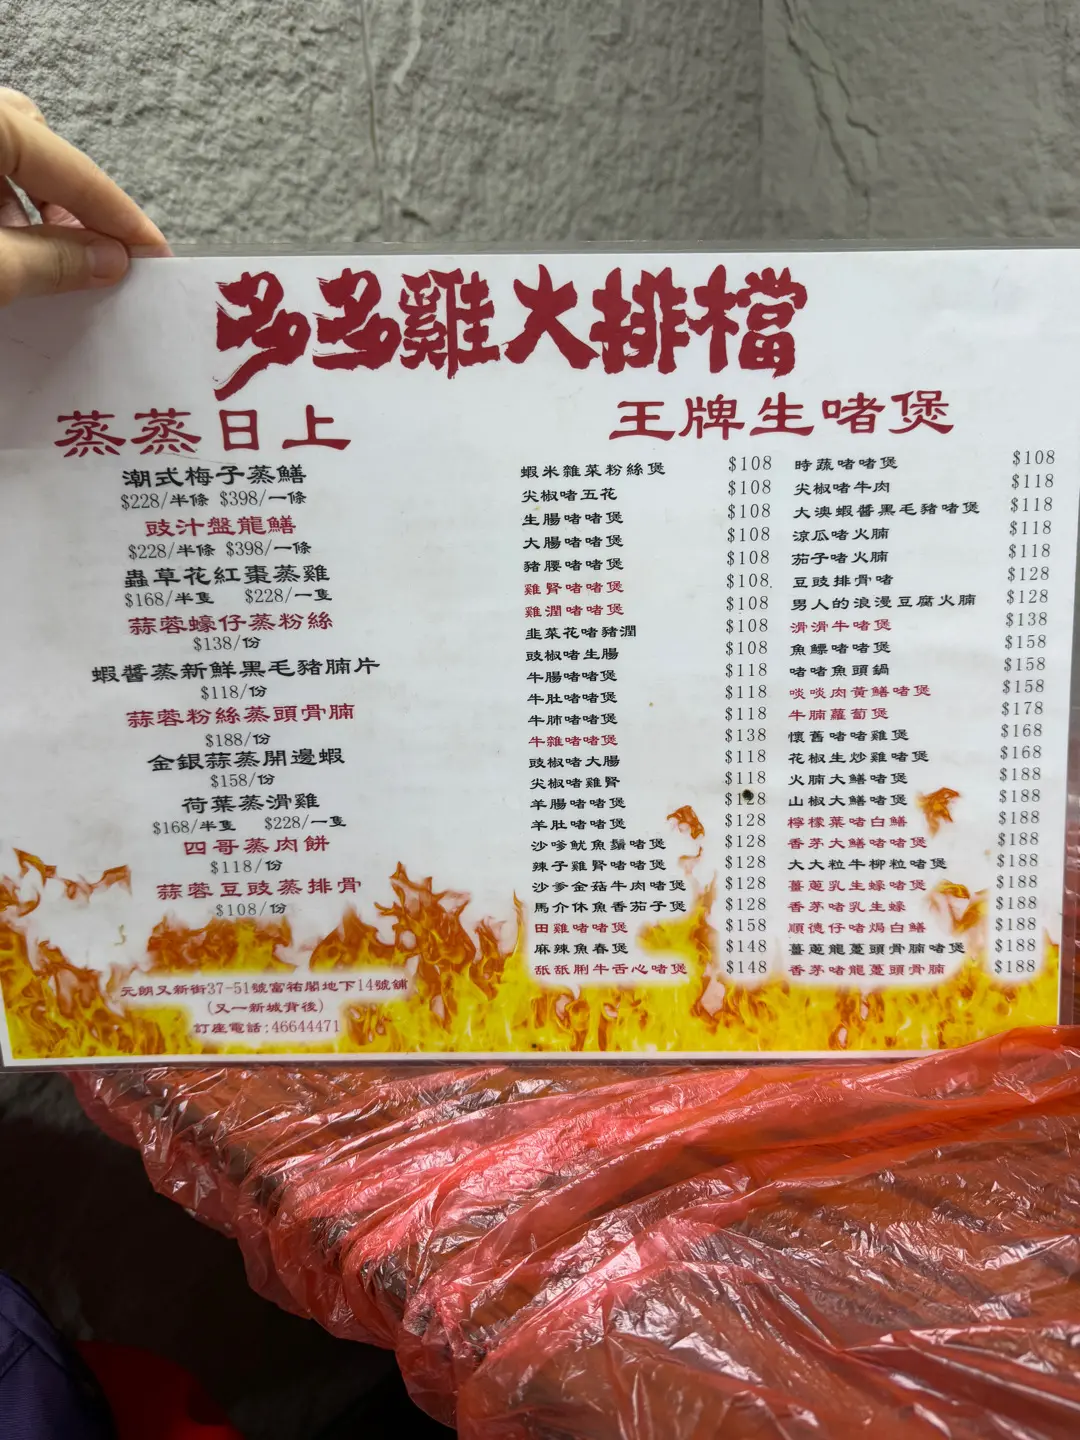 多多雞大排檔
蒸蒸日上
潮式梅子蒸鱔
$228/半條 $398/一條
豉汁盤龍鱔
$228/半條 $398/一條
蟲草花紅棗蒸雞
$168/半隻 $228/一隻
蒜蓉蠔仔蒸粉絲
$138/份
蝦醬蒸新鮮黑毛豬腩片
$118/份
蒜蓉粉絲蒸頭骨腩
$188/份
金銀蒜蒸開邊蝦
$158/份
荷葉蒸滑雞
$168/半隻 $228/一隻
四哥蒸肉餅
$118/份
蒜蓉豆豉蒸排骨
$108/份
元朗又新街37-51號富祐閣地下14號舖
(又一新城背後)
訂座電話:46644471
王牌生啫煲
蝦米雜菜粉絲煲 $108
尖椒啫五花 $108
生腸啫啫煲 $108
大腸啫啫煲 $108
豬腰啫啫煲 $108
雞腎啫啫煲 $108
雞潤啫啫煲 $108
韭菜花啫豬潤 $108
豉椒啫生腸 $108
牛腸啫啫煲 $118
牛肚啫啫煲 $118
牛腩啫啫煲 $118
牛雜啫啫煲 $138
豉椒啫大腸 $118
尖椒啫雞腎 $118
羊腸啫啫煲 $128
羊肚啫啫煲 $128
沙嗲魷魚鬚啫煲 $128
辣子雞腎啫啫煲 $128
沙爹金菇牛肉啫煲 $128
馬介休魚香茄子煲 $128
田雞啫啫煲 $158
麻辣魚春煲 $148
舐舐脷牛舌心啫煲 $148
時蔬啫啫煲 $108
尖椒啫牛肉 $118
大澳蝦醬黑毛豬啫煲 $118
涼瓜啫火腩 $118
茄子啫火腩 $118
豆豉排骨啫 $128
男人的浪漫豆腐火腩 $128
滑滑牛啫煲 $138
魚鰾啫啫煲 $158
啫啫魚頭鍋 $158
啖啖肉黃鱔啫煲 $158
牛腩蘿蔔煲 $178
懷舊啫啫雞煲 $168
花椒生炒雞啫煲 $168
火腩大鱔啫煲 $188
山椒大鱔啫煲 $188
檸檬葉啫白鱔 $188
香茅大鱔啫啫煲 $188
大大粒牛柳粒啫煲 $188
薑蔥乳生蠔啫煲 $188
香茅啫乳生蠔 $188
順德仔啫焗白鱔 $188
薑蔥龍躉頭骨腩啫煲 $188
香茅啫龍躉頭骨腩 $188